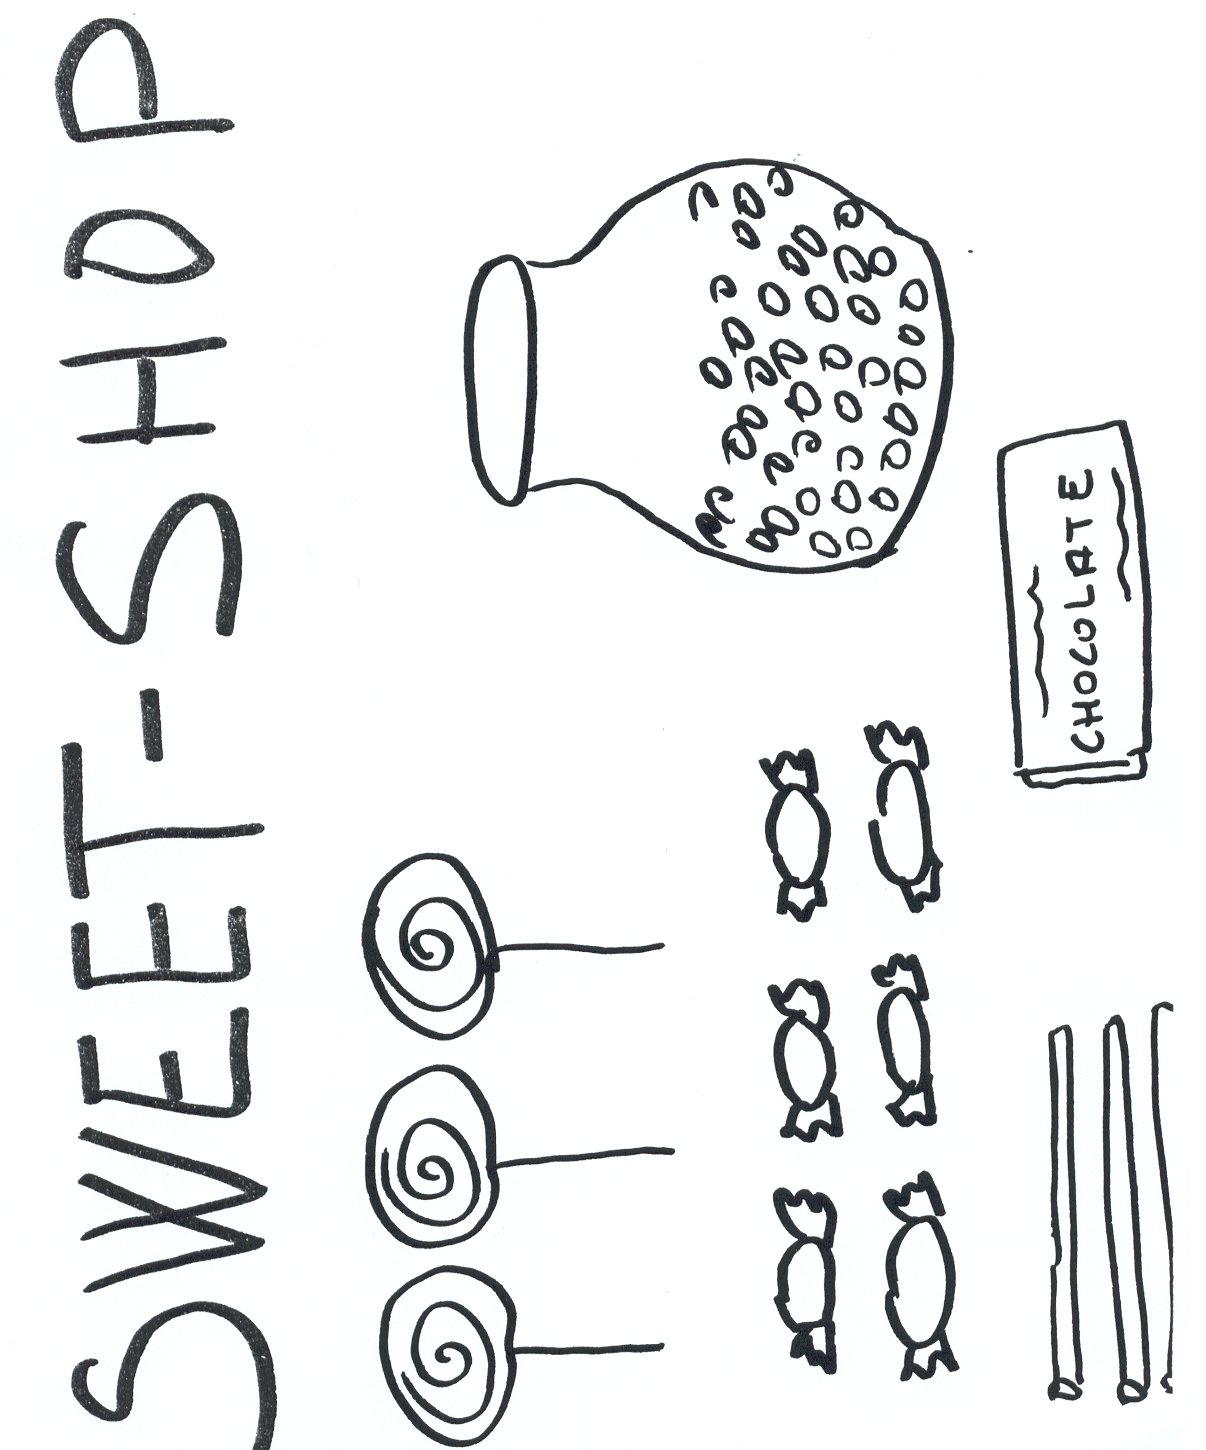 SWEET-SHOP
CHOCOLATE